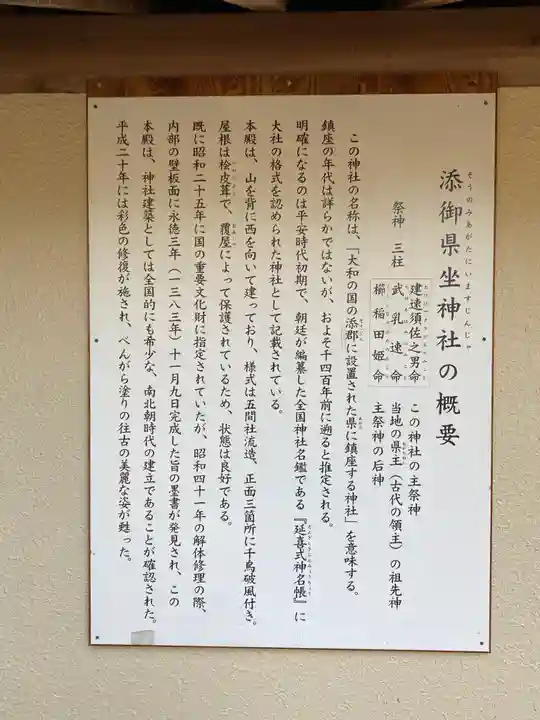 添御県坐神社の概要
そうのみあがたにいますじんじゃ
祭神 三柱
建速須佐之男命 この神社の主祭神
武乳速命 当地の県主（古代の領主）の祖先神
櫛稲田姫命 主祭神の后神
この神社の名称は、「大和の国の添郡に設置された県に鎮座する神社」を意味する。
鎮座の年代は詳らかではないが、およそ千四百年前に遡ると推定される。
明確になるのは平安時代初期で、朝廷が編纂した全国神社名鑑である『延喜式神名帳』に
大社の格式を認められた神社として記載されている。
本殿は、山を背に西を向いて建っており、様式は五間社流造、正面三箇所に千鳥破風付き。
屋根は桧皮葺で、覆屋によって保護されているため、状態は良好である。
既に昭和二十五年に国の重要文化財に指定されていたが、昭和四十一年の解体修理の際、
内部の壁板面に永徳三年（一三八三年）十一月九日完成した旨の墨書が発見され、この
本殿は、神社建築としては全国的にも希少な、南北朝時代の建立であることが確認された。
平成二十年には彩色の修復が施され、べんがら塗りの往古の美麗な姿が甦った。